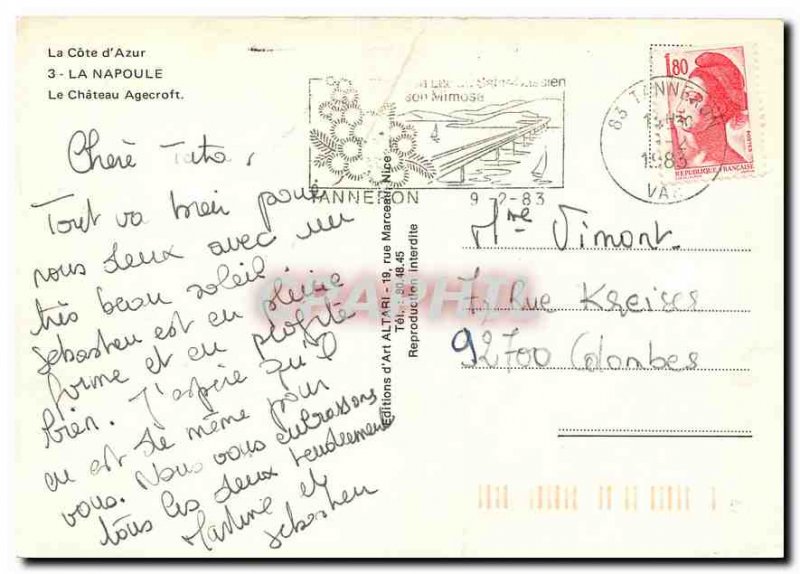 La Côte d'Azur
3 - LA NAPOULE
Le Château Agecroft.
son Mimosa
TANNERON
9 -2-83
83 TANNERON
1983
VAR
1,80
REPUBLIQUE FRANÇAISE
Tout va bien pour
nous deux avec un
très beau soleil
Sebastien est en pleine
forme et en profite
bien. J'espère qu'il
en est de même pour
vous. Nous vous embrassons
tous les deux tendrement
Martine et
Sebastien
Editions d'Art ALTARI - 19, rue Marceau, Nice
Tél. : 80.48.45
Reproduction interdite
Mme Vimont
Rue
92700 Colombes